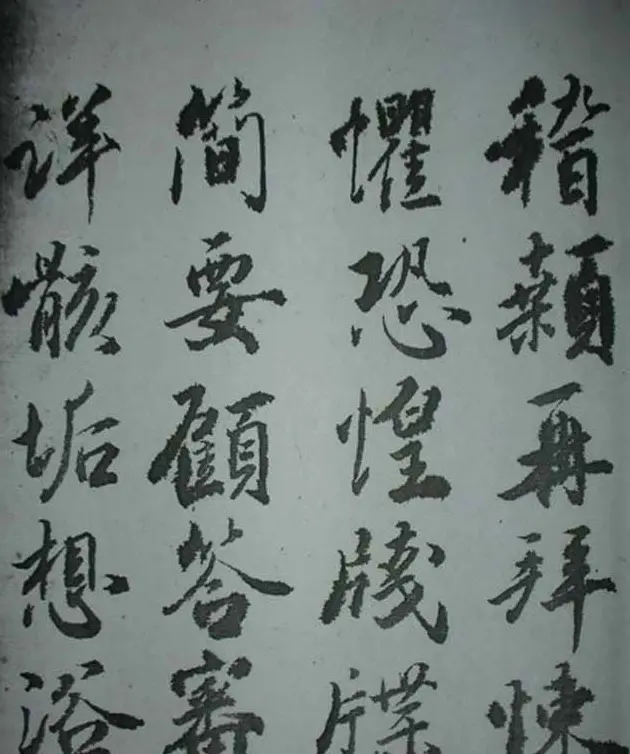 稽顙再拜悚
懼恐惶牋牒
簡要顧答審
詳骸垢想浴